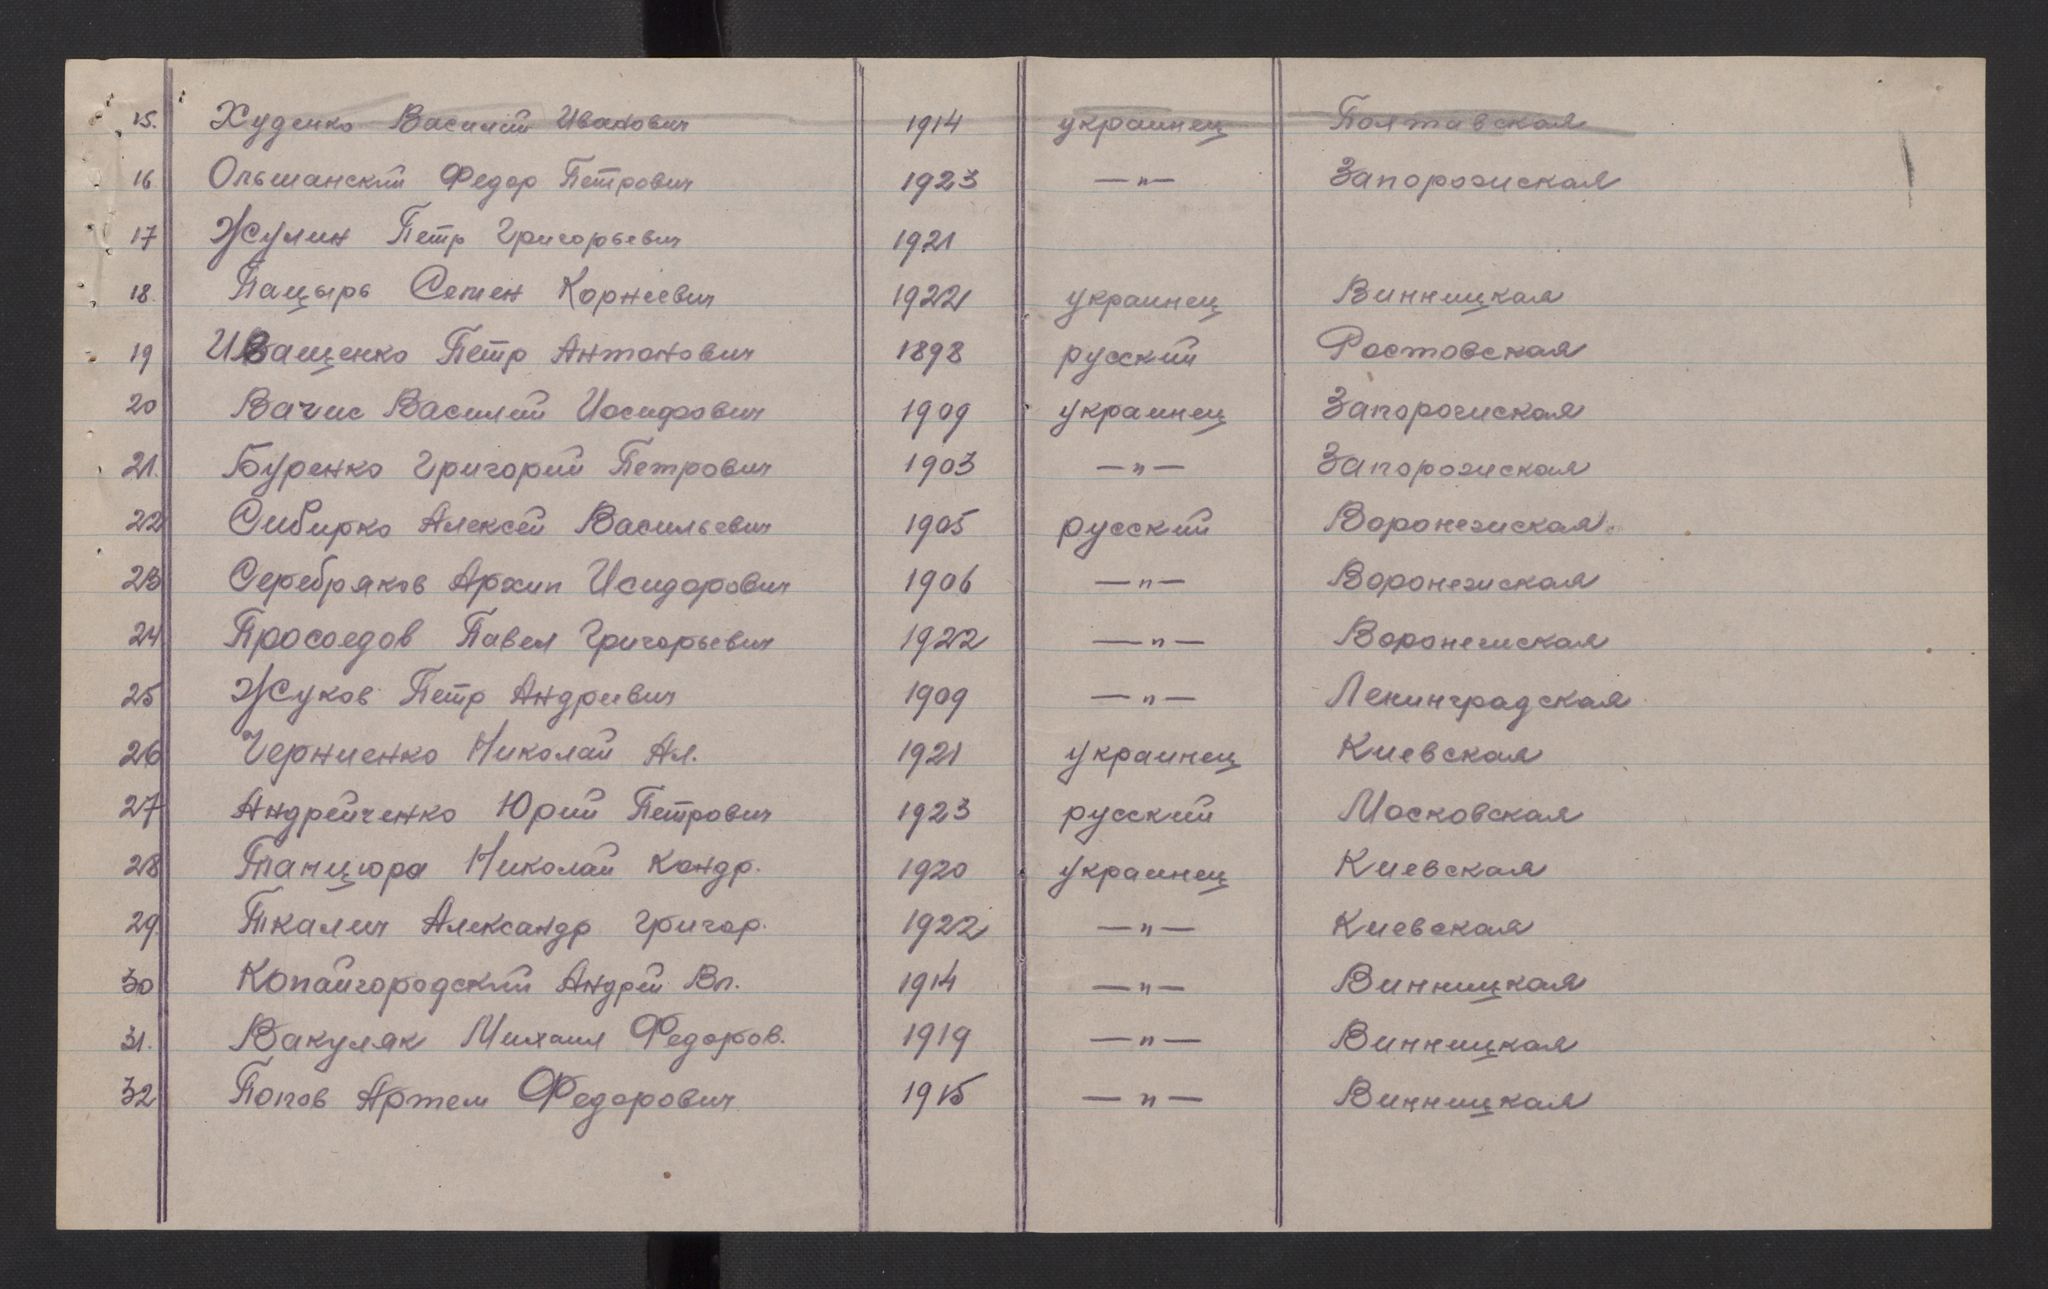 15. Худенко Василий Иванович 1914 украинец Полтавская
16 Ольшанский Федор Петрович 1923 —"— Запорожская
17 Жулин Петр Григорьевич 1921
18. Пацырь Семен Корнеевич 1922 украинец Винницкая
19 Иващенко Петр Антонович 1898 русский Ростовская
20 Вачис Василий Иосифович 1909 украинец Запорожская
21. Буренко Григорий Петрович 1903 —"— Запорожская
22 Сибирко Алексей Васильевич 1905 русский Воронежская
23 Серебряков Архип Исидорович 1906 —"— Воронежская
24 Просоедов Павел Григорьевич 1922 —"— Воронежская
25 Жуков Петр Андреевич 1909 —"— Ленинградская
26 Черниенко Николай Ал. 1921 украинец Киевская
27 Андрейченко Юрий Петрович 1923 русский Московская
28 Танцюра Николай Кондр. 1920 украинец Киевская
29 Ткалич Александр Григор. 1922 —"— Киевская
30 Копайгородский Андрей Вл. 1914 —"— Винницкая
31. Вакуляк Михаил Федоров. 1919 —"— Винницкая
32 Попов Артем Федорович 1915 —"— Винницкая